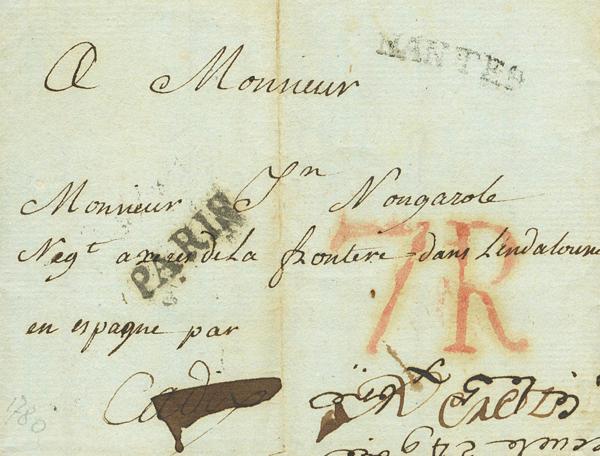 MANTES
A Monsieur
Monsieur Jn Nougarole
PARIS
Negt a xerez de La frontere dans Landalousie
7R
en espagne par
Cadix
1780